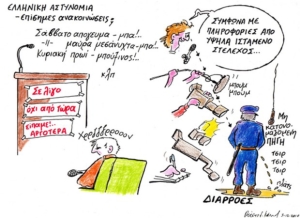 ΕΛΛΗΝΙΚΗ ΑΣΤΥΝΟΜΙΑ
-επίσημες ανακοινώσεις;
Σάββατο απόγευμα - μπα!..
-//- μαύρα μεσάνυχτα-μπα!..
Κυριακή πρωί - μπούζινος!..
κλπ
Σε λίγο
όχι από τώρα
είπαμε!..
ΑΡΓΟΤΕΡΑ
ΣΥΜΦΩΝΑ ΜΕ
ΠΛΗΡΟΦΟΡΙΕΣ ΑΠΟ
ΥΨΗΛΑ ΙΣΤΑΜΕΝΟ
ΣΤΕΛΕΧΟΣ...
μπουμ
μπουμ
Μη
κατονο-
μαζόμενη
ΠΗΓΗ
τσιρ
τσιρ
τσιρ
ΔΙΑΡΡΟΕΣ